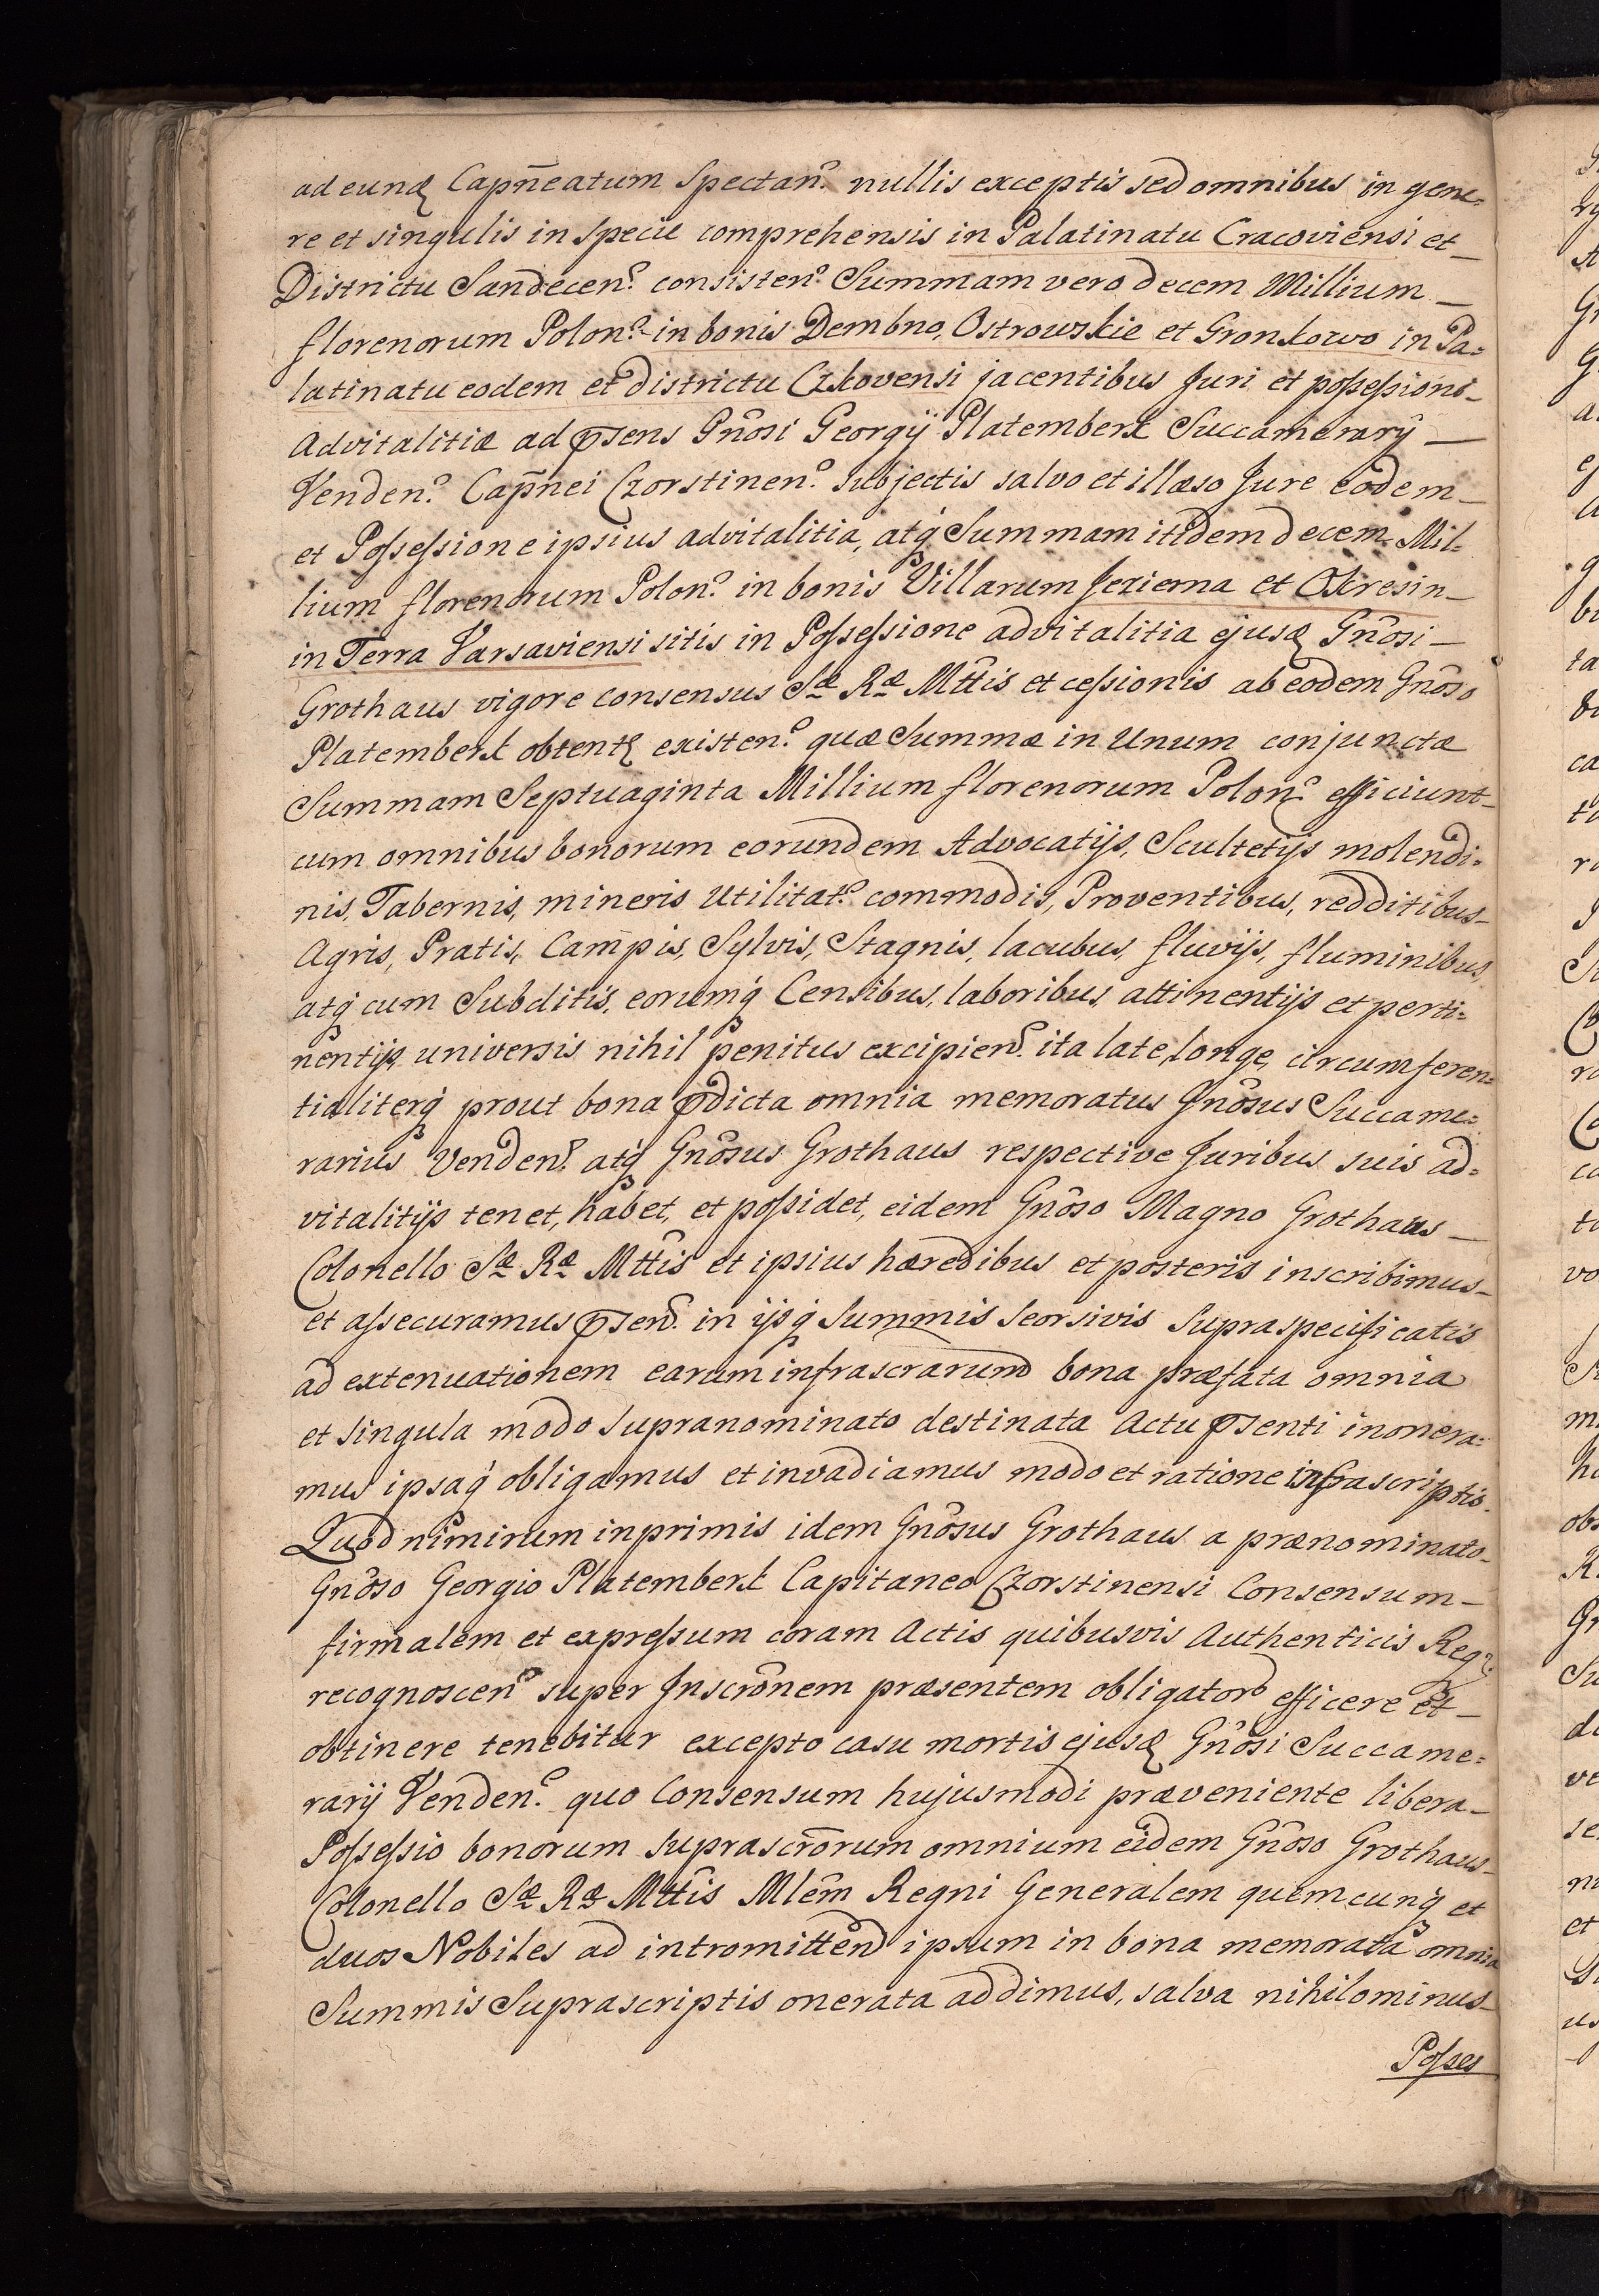 ad eunđ Capn̄eatum Spectan̊. nullis exceptis sed omnibus in gene=
re et singulis in Specie comprehensis in Palatinatu Cracoviensi et_
Districtu Sandecen̊. consisten̊. Summam vero decem Millium_
florenorum Polon̊. in bonis Dembno, Ostrowskie et Gronkowo in Pa=
latinatu eodem et districtu Czkovensi jacentibus Juri et possessioni_
Advitalitiæ ad p̄sens Gn̂osi Georgij Platemberk Succamerarÿ_
Venden̊. Capn̄ei Czorstinen̊. subjectis salvo et illæso Jure eodem_
et Possessione ipsius advitalitia, atq́ Summam itidem decem Mil=
lium florenorum Polon̊. in bonis Villarum Jeziema et Okresin_
in Terra Varsaviensi sitis in Possessione advitalitia ejusđ Gn̂osi_
Grothaus vigore consensus Sæ Ræ Mt̂tis et cessionis ab eodem Gn̂oso
Platemberk obtentę existen̊. quæ Summæ in Unum conjunctæ
Summam Septuaginta Millium florenorum Polon̊. efficiunt_
cum omnibus bonorum eorundem Advocatijs, Scultetijs molendi=
nis, Tabernis, mineris Utilitat̊. commodis, Proventibus, redditibus_
Agris, Pratis, Campis, Sylvis, Stagnis, lacubus, fluvijs, fluminibus,
atq́ cum Subditis, eorumq́ Censibus, laboribus, attinentijs et perti=
nentijs, universis nihil penitus excipien̊. ita late, longe, circumferen=
tialiterq́ prout bona p̄dicta omnia memoratus Gn̂osus Succame=
rarius Venden̊. atq́ Gn̂osus Grothaus respective Juribus suis ad=
vitalitijs tenet, habet, et possidet, eidem Gn̂oso Magno Grothaus_
Colonello Sæ Ræ Mt̂tis et ipsius hæredibus et posteris inscribimus_
et assecuramus p̄sen̊. in ijsq́ Summis seorsivis Supraspecificatis
ad extenuationem earum infrascrarum bona præfata omnia
et singula modo supranominato destinata Actu p̄senti inonera=
mus ipsaq́ obligamus et invadiamus modo et ratione infrascriptis.
Quod nimirum inprimis idem Gn̂osus Grothaus a prænominato_
Gn̂oso Georgio Platemberk Capitaneo Czorstinensi Consensum_
firmalem et expressum coram Actis quibusvis Authenticis Regn̊.
recognoscen̊ super Inscrôn̂em præsentem obligator̊ efficere et_
obtinere tenebitur excepto casu mortis ejusđ Gn̂osi Succame=
rarij Venden̊. quo Consensum hujusmodi præveniente libera_
Possessio bonorum suprascrōrum omnium eidem Gn̂oso Grothaus_
Colonello Sæ Ræ Mt̂tis Mlêm Regni Generalem quemcunq́ et
duos Nobiles ad intromitten̊ ipsum in bona memorata omnia
Summis Suprascriptis onerata addimus, salva nihilominus_
Posses